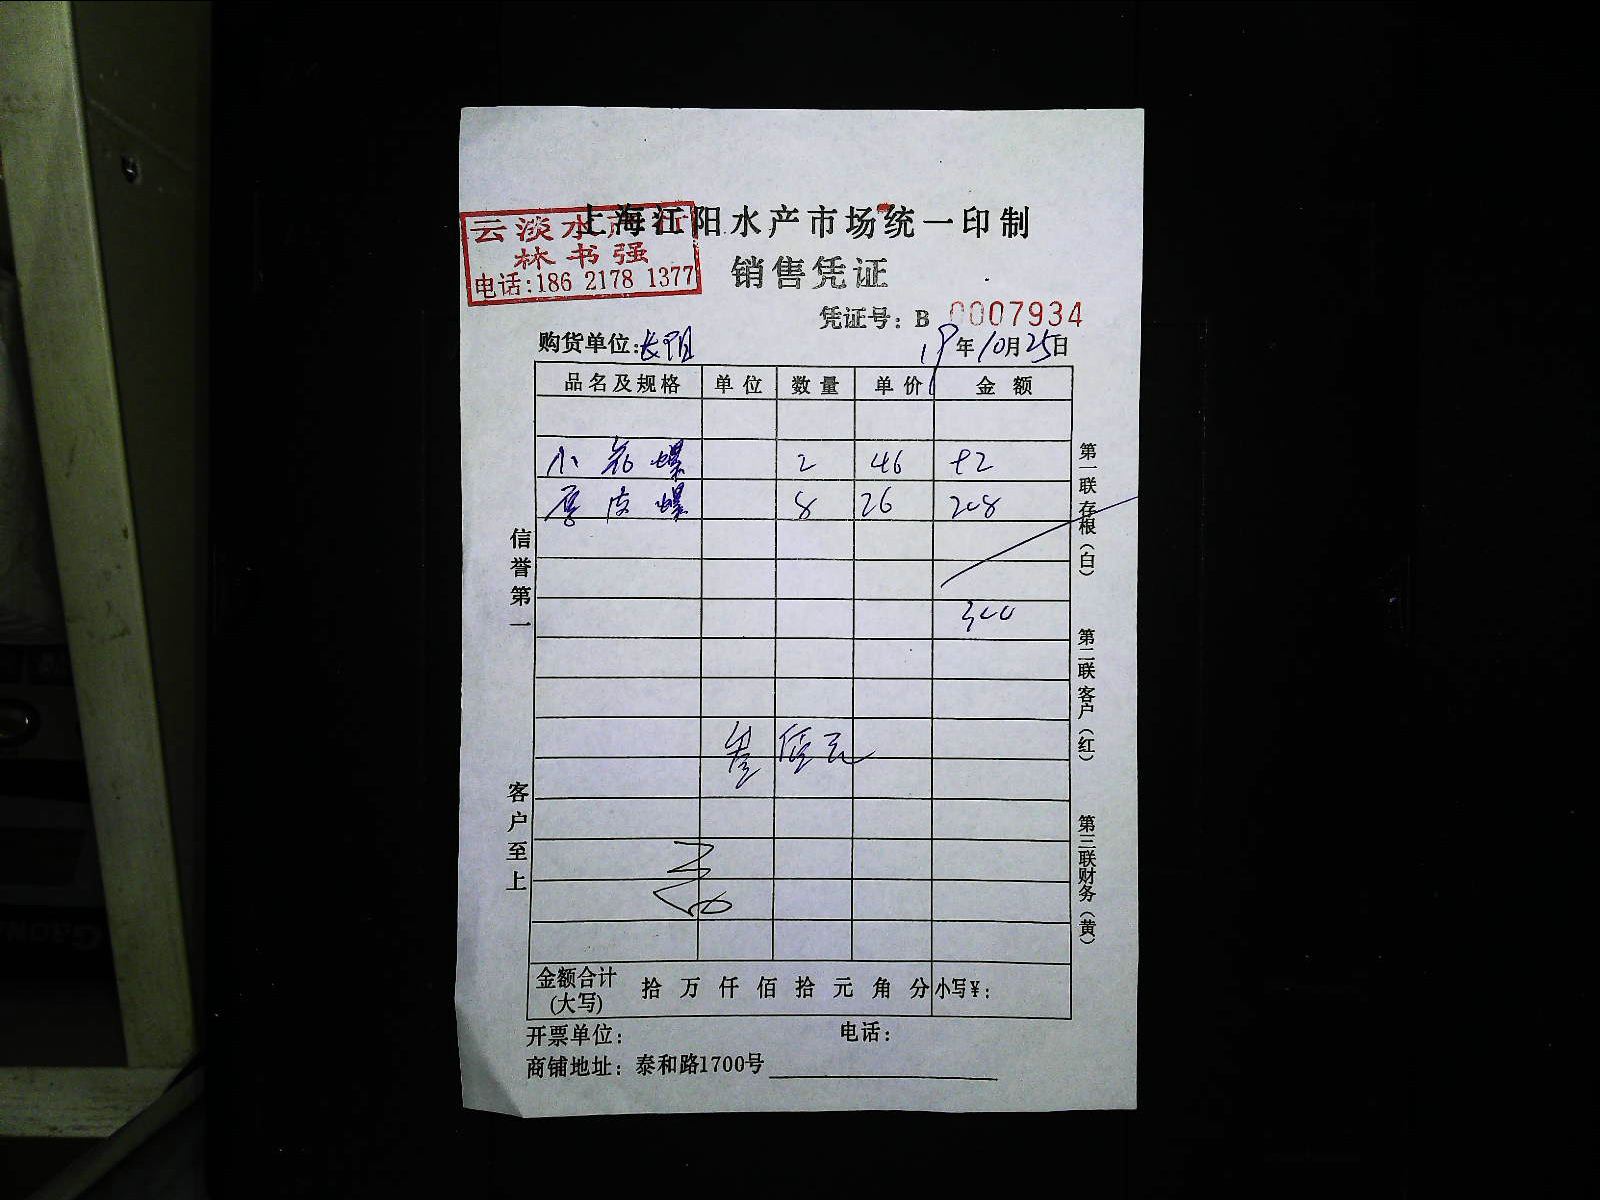 上海江阳水产市场统一印制
云淡水产行
林书强
电话:186 2178 1377
销售凭证
凭证号: B 0007934
购货单位:长阳 19年10月25日
品名及规格 单位 数量 单价 金额
小花螺 2 46 92
厚皮螺 8 26 208
300
叁佰元
金额合计(大写) 拾 万 仟 佰 拾 元 角 分 小写¥:
开票单位: 电话:
商铺地址: 泰和路1700号
信誉第一
客户至上
第一联存根(白)
第二联客户(红)
第三联财务(黄)